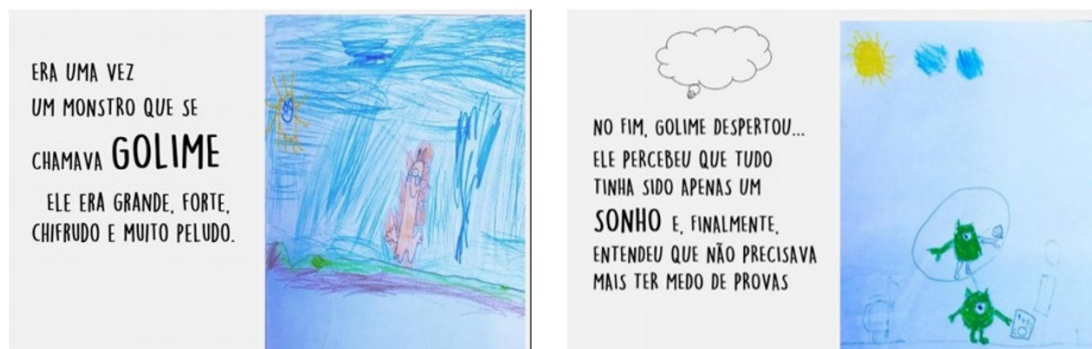 ERA UMA VEZ
UM MONSTRO QUE SE
CHAMAVA GOLIME
ELE ERA GRANDE, FORTE,
CHIFRUDO E MUITO PELUDO.
NO FIM, GOLIME DESPERTOU...
ELE PERCEBEU QUE TUDO
TINHA SIDO APENAS UM
SONHO E, FINALMENTE,
ENTENDEU QUE NÃO PRECISAVA
MAIS TER MEDO DE PROVAS